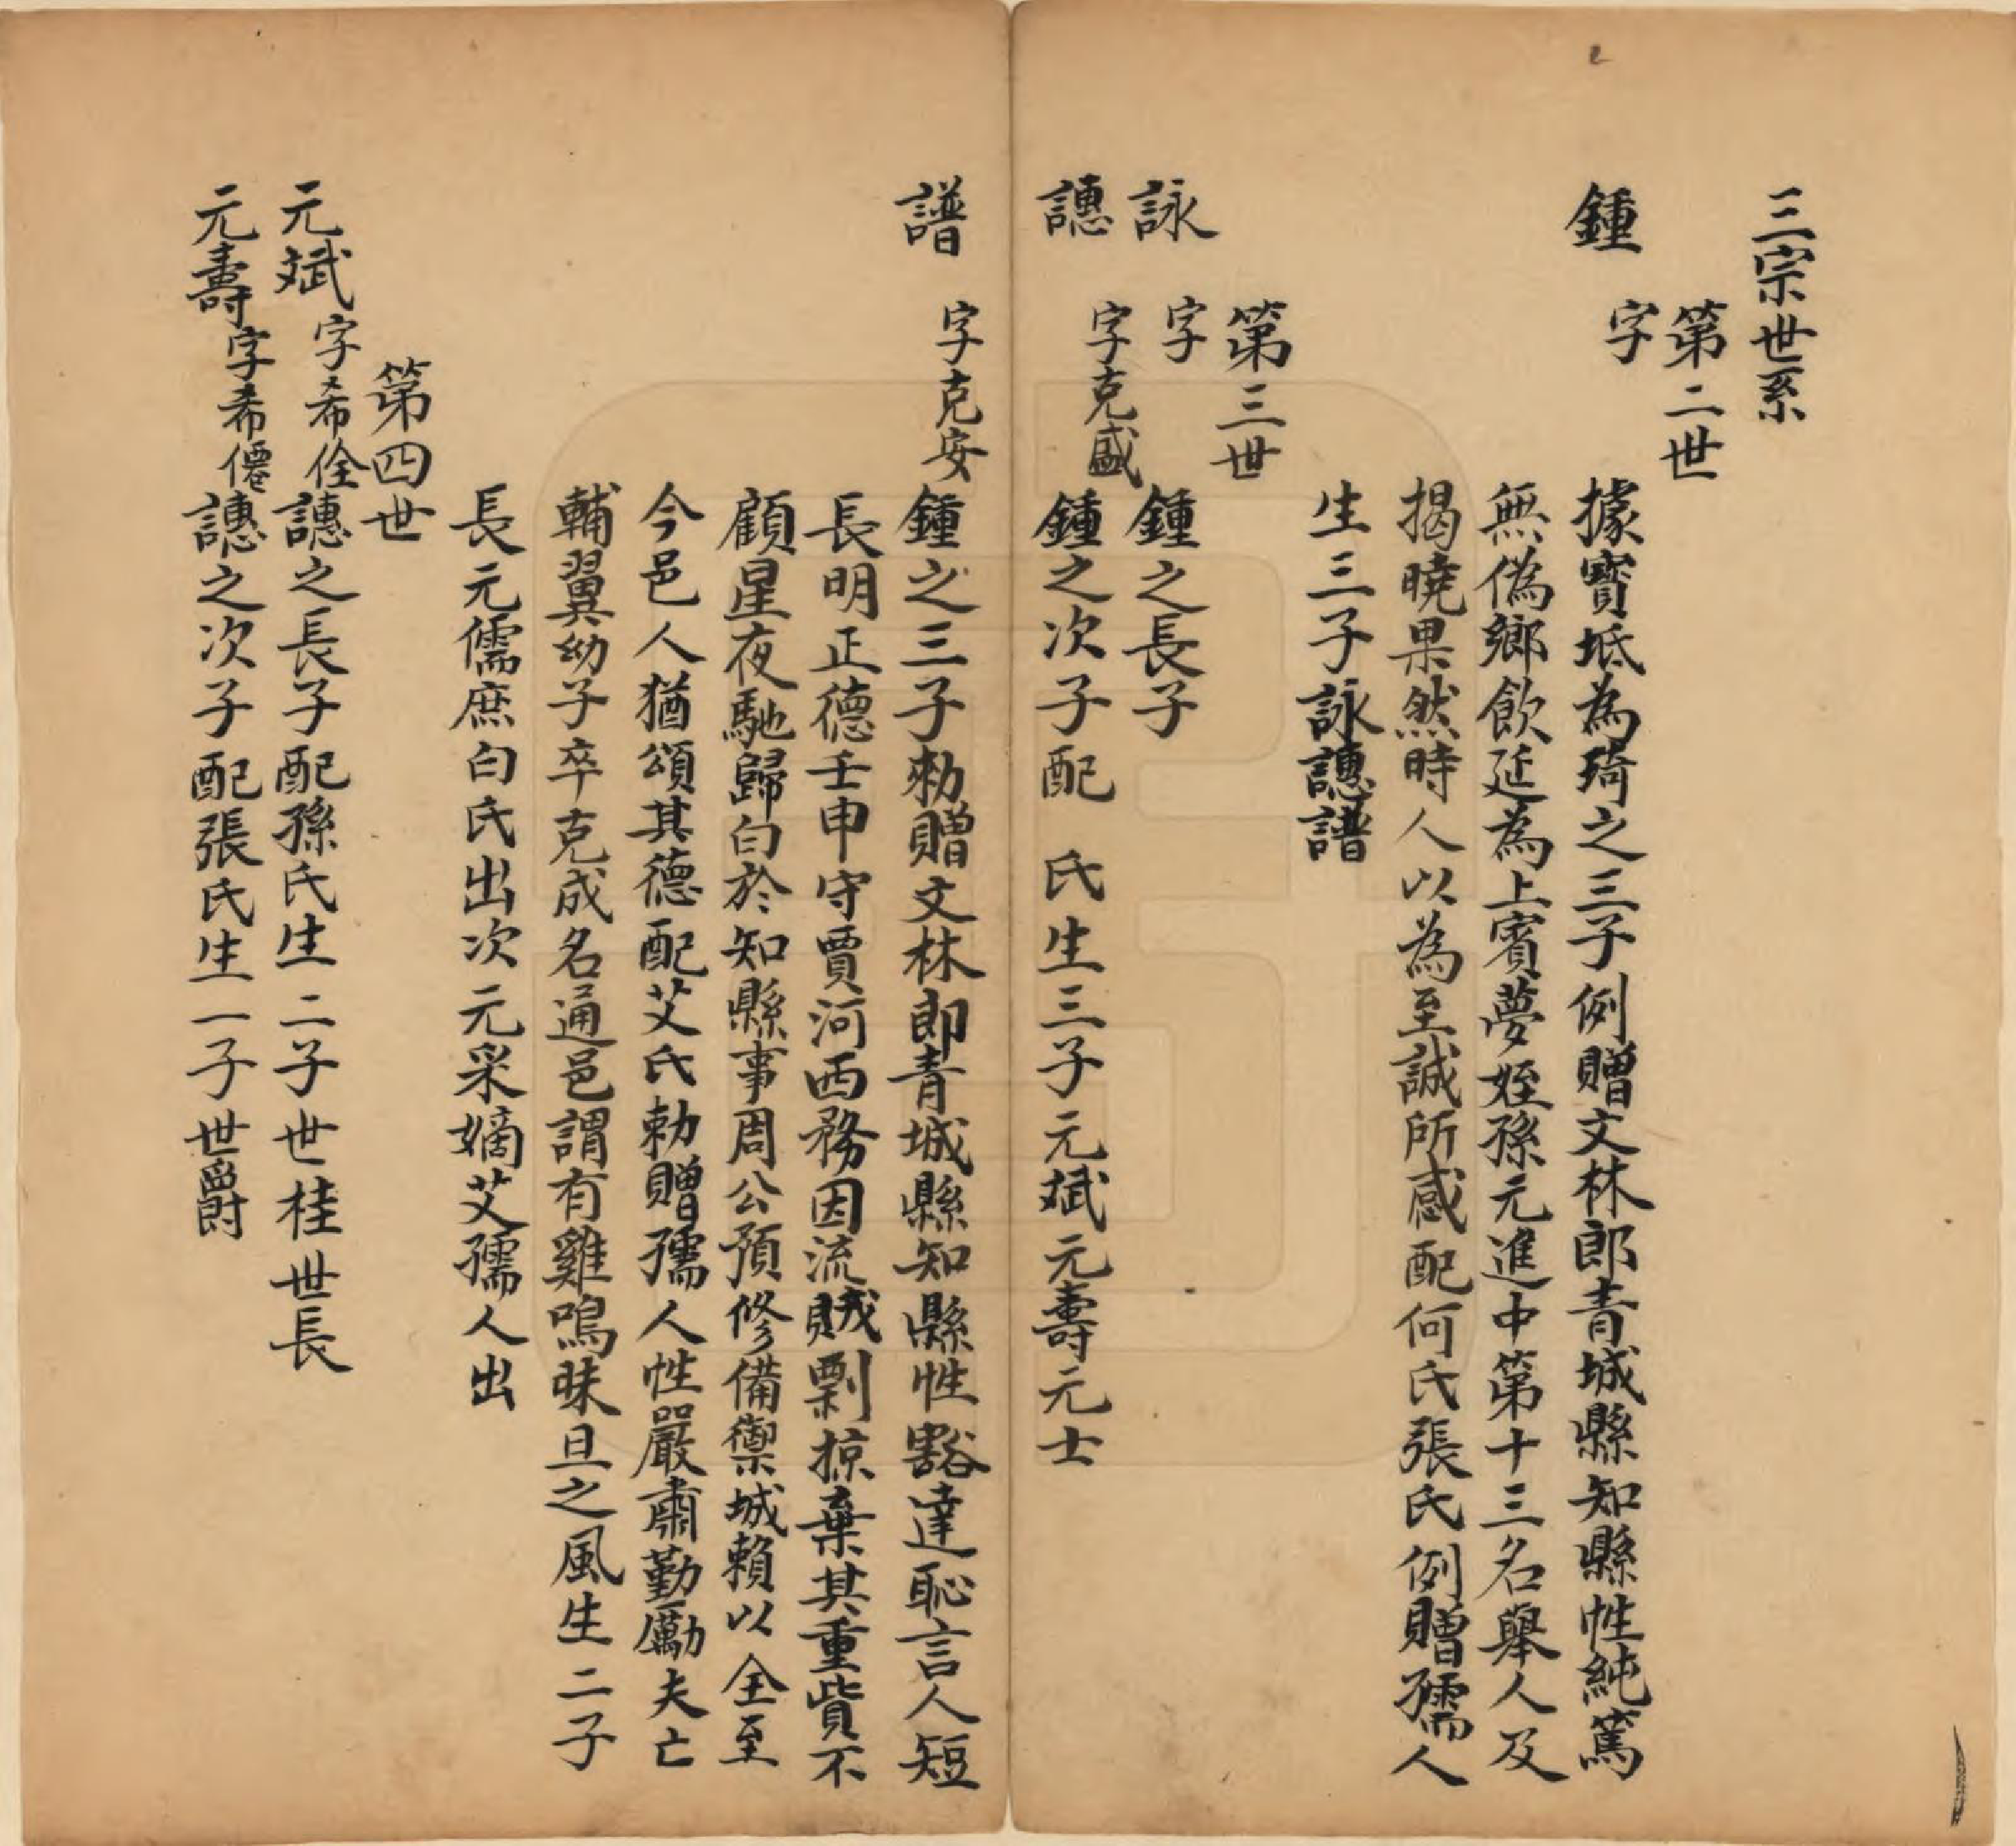 三宗世系
第二世
鍾 字
據寶坻為琦之三子例贈文林郎青城縣知縣性純篤
無偽鄉飲延為上賓夢姪孫元進中第十三名舉人及
揭曉果然時人以為至誠所感配何氏張氏例贈孺人
生三子詠譓譜
第三世
詠 字 鍾之長子
譓 字克盛 鍾之次子配 氏生三子元斌元壽元士
譜 字克安 鍾之三子勑贈文林郎青城縣知縣性豁達恥言人短
長明正德壬申守賈河西務因流賊剽掠棄其重貲不
顧星夜馳歸白於知縣事周公預修備禦城賴以全至
今邑人猶頌其德配艾氏勅贈孺人性嚴肅勤勵夫亡
輔翼幼子卒克成名通邑謂有雞鳴昧旦之風生二子
長元儒庶白氏出次元采嫡艾孺人出
第四世
元斌 字希佺 譓之長子配孫氏生二子世桂世長
元壽 字希僊 譓之次子配張氏生一子世爵